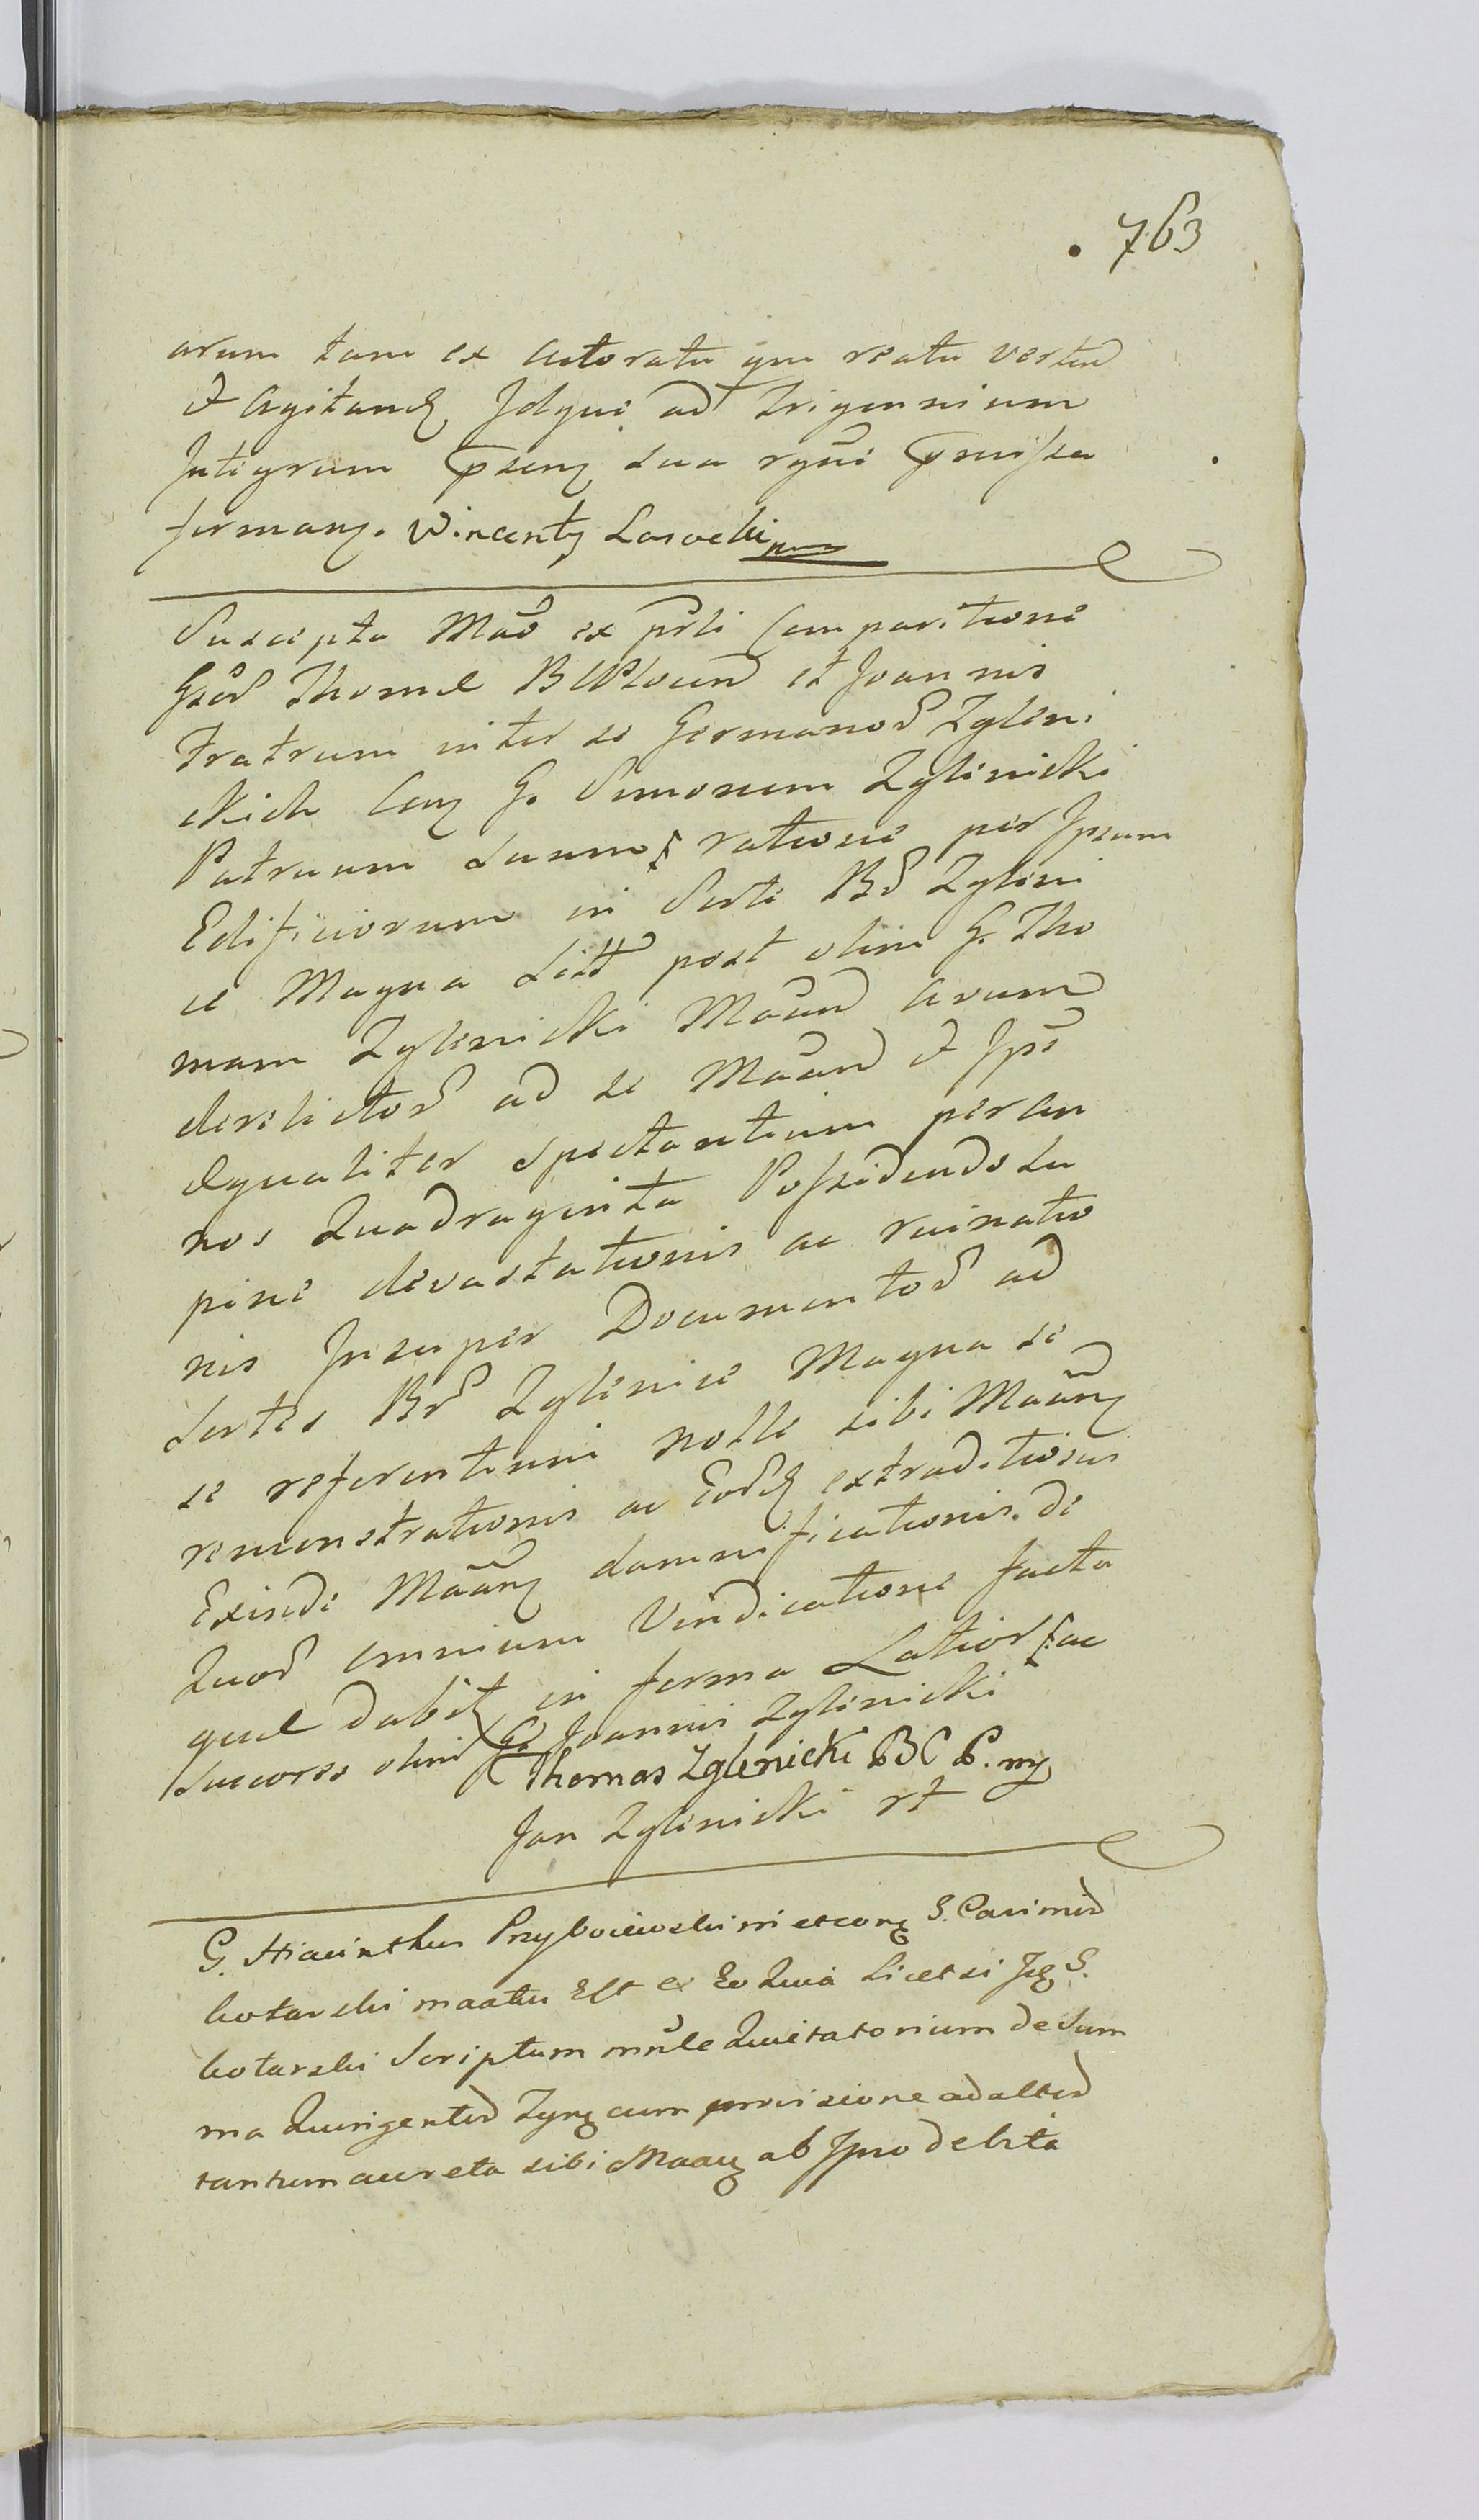 763
arum tam ex Actoratu qm reatu verten
et Agitand Idque ad Trigennium
Integrum psenq sua rgni pmissa
firmanq. Wincenty Lasocki mp
Suscepta Mao ex psli Comparitione
Gsor Thomæ B C Plocen et Joannis
Fratrum inter se Germanor Zgleni
ckich Conq G. Simonem Zglinicki
Patruum suum ratione per Ipsum
Edificiorum in Sorte Br Zgleni
ce Magna Sitt post olim G. Tho
mam Zglenicki Maan Avum
derelictor ad se Maan et Ipm
Equaliter spectantium per An
nos Quadraginta Possidendo Su
pine devastationis ac ruinatio
nis Insuper Documentor ad
Sortes Br Zglenice Magna se
se referentium nolle sibi Maanq
remonstrationis ac Eord extraditionis
Exinde Maanq damnificationis. de
Quor omnium Vindicatione facta
quæ dabit in forma Latior ac
Successo olim G. Joannis Zglinicki
Thomas Zglenicki B C P. mp
Jan Zglinicki rt
G. Hiacinthus Przyboiewski in et conq G. Casimir
kotarski maatu Est ex Eo Quia Licet si Iq G.
kotarski Scriptum mnle Quietatorium de Sum
ma Quingenter Zynq cum provisione ad alter
tantum aucreta sibi Maaq ab Ipso debita